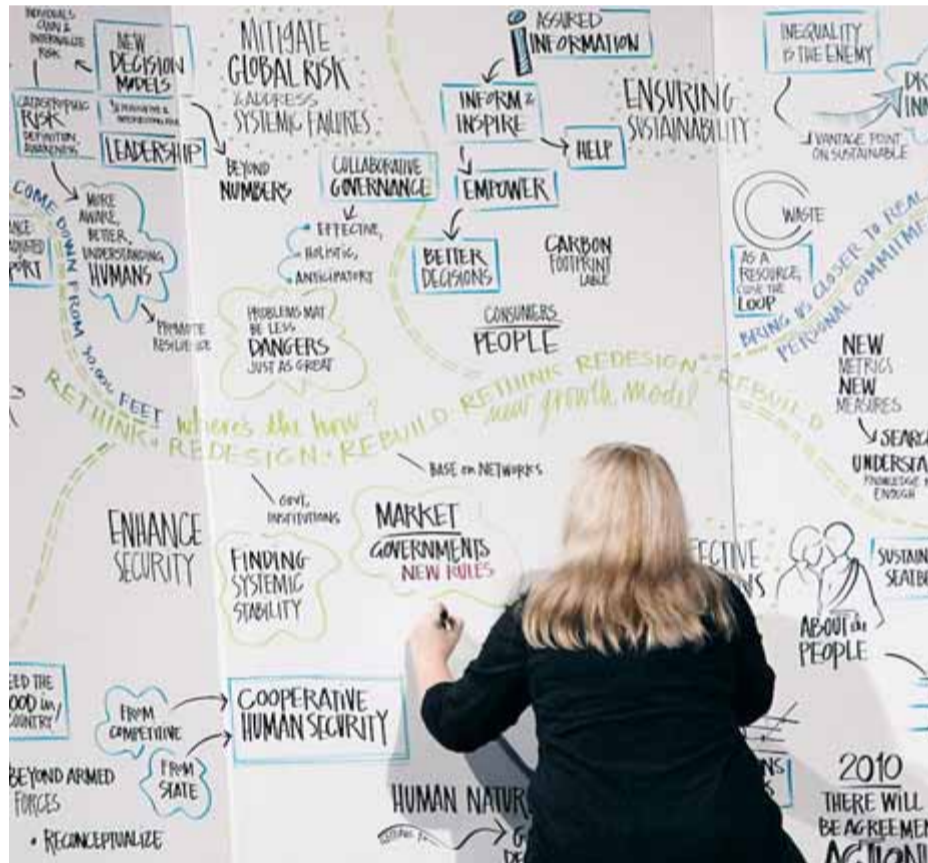 INDIVIDUALS
INTERNALIZE
RISK
NEW
DECISION
MODELS
CATASTROPHIC
RISK
DEFINITION
AWARENESS
LEADERSHIP
MORE
AWARE,
BETTER,
UNDERSTANDING
HUMANS
PROMOTE
RESILIENCE
COME DOWN FROM 30,000 FEET
MITIGATE
GLOBAL RISK
& ADDRESS
SYSTEMIC FAILURES
BEYOND
NUMBERS
COLLABORATIVE
GOVERNANCE
EFFECTIVE,
HOLISTIC,
ANTICIPATORY
PROBLEMS MAY
BE LESS
DANGERS
JUST AS GREAT
ASSURED
INFORMATION
INFORM &
INSPIRE
HELP
EMPOWER
BETTER
DECISIONS
CARBON
FOOTPRINT
LABLE
CONSUMERS
PEOPLE
ENSURING
SUSTAINABILITY
INEQUALITY
IS THE ENEMY
VANTAGE POINT
ON SUSTAINABLE
WASTE
AS A
RESOURCE,
CLOSE THE
LOOP
BRING US CLOSER TO
PERSONAL
NEW
METRICS
NEW
MEASURES
RETHINK • REDESIGN • REBUILD • RETHINK REDESIGN • REBUILD
where's the how?
new growth model
BASE ON NETWORKS
GOVT.
INSTITUTIONS
ENHANCE
SECURITY
FINDING
SYSTEMIC
STABILITY
MARKET
GOVERNMENTS
NEW RULES
ABOUT the
PEOPLE
FROM
COMPETITIVE
FROM
STATE
COOPERATIVE
HUMAN SECURITY
BEYOND ARMED
FORCES
• RECONCEPTUALIZE
HUMAN
2010
THERE WILL
BE